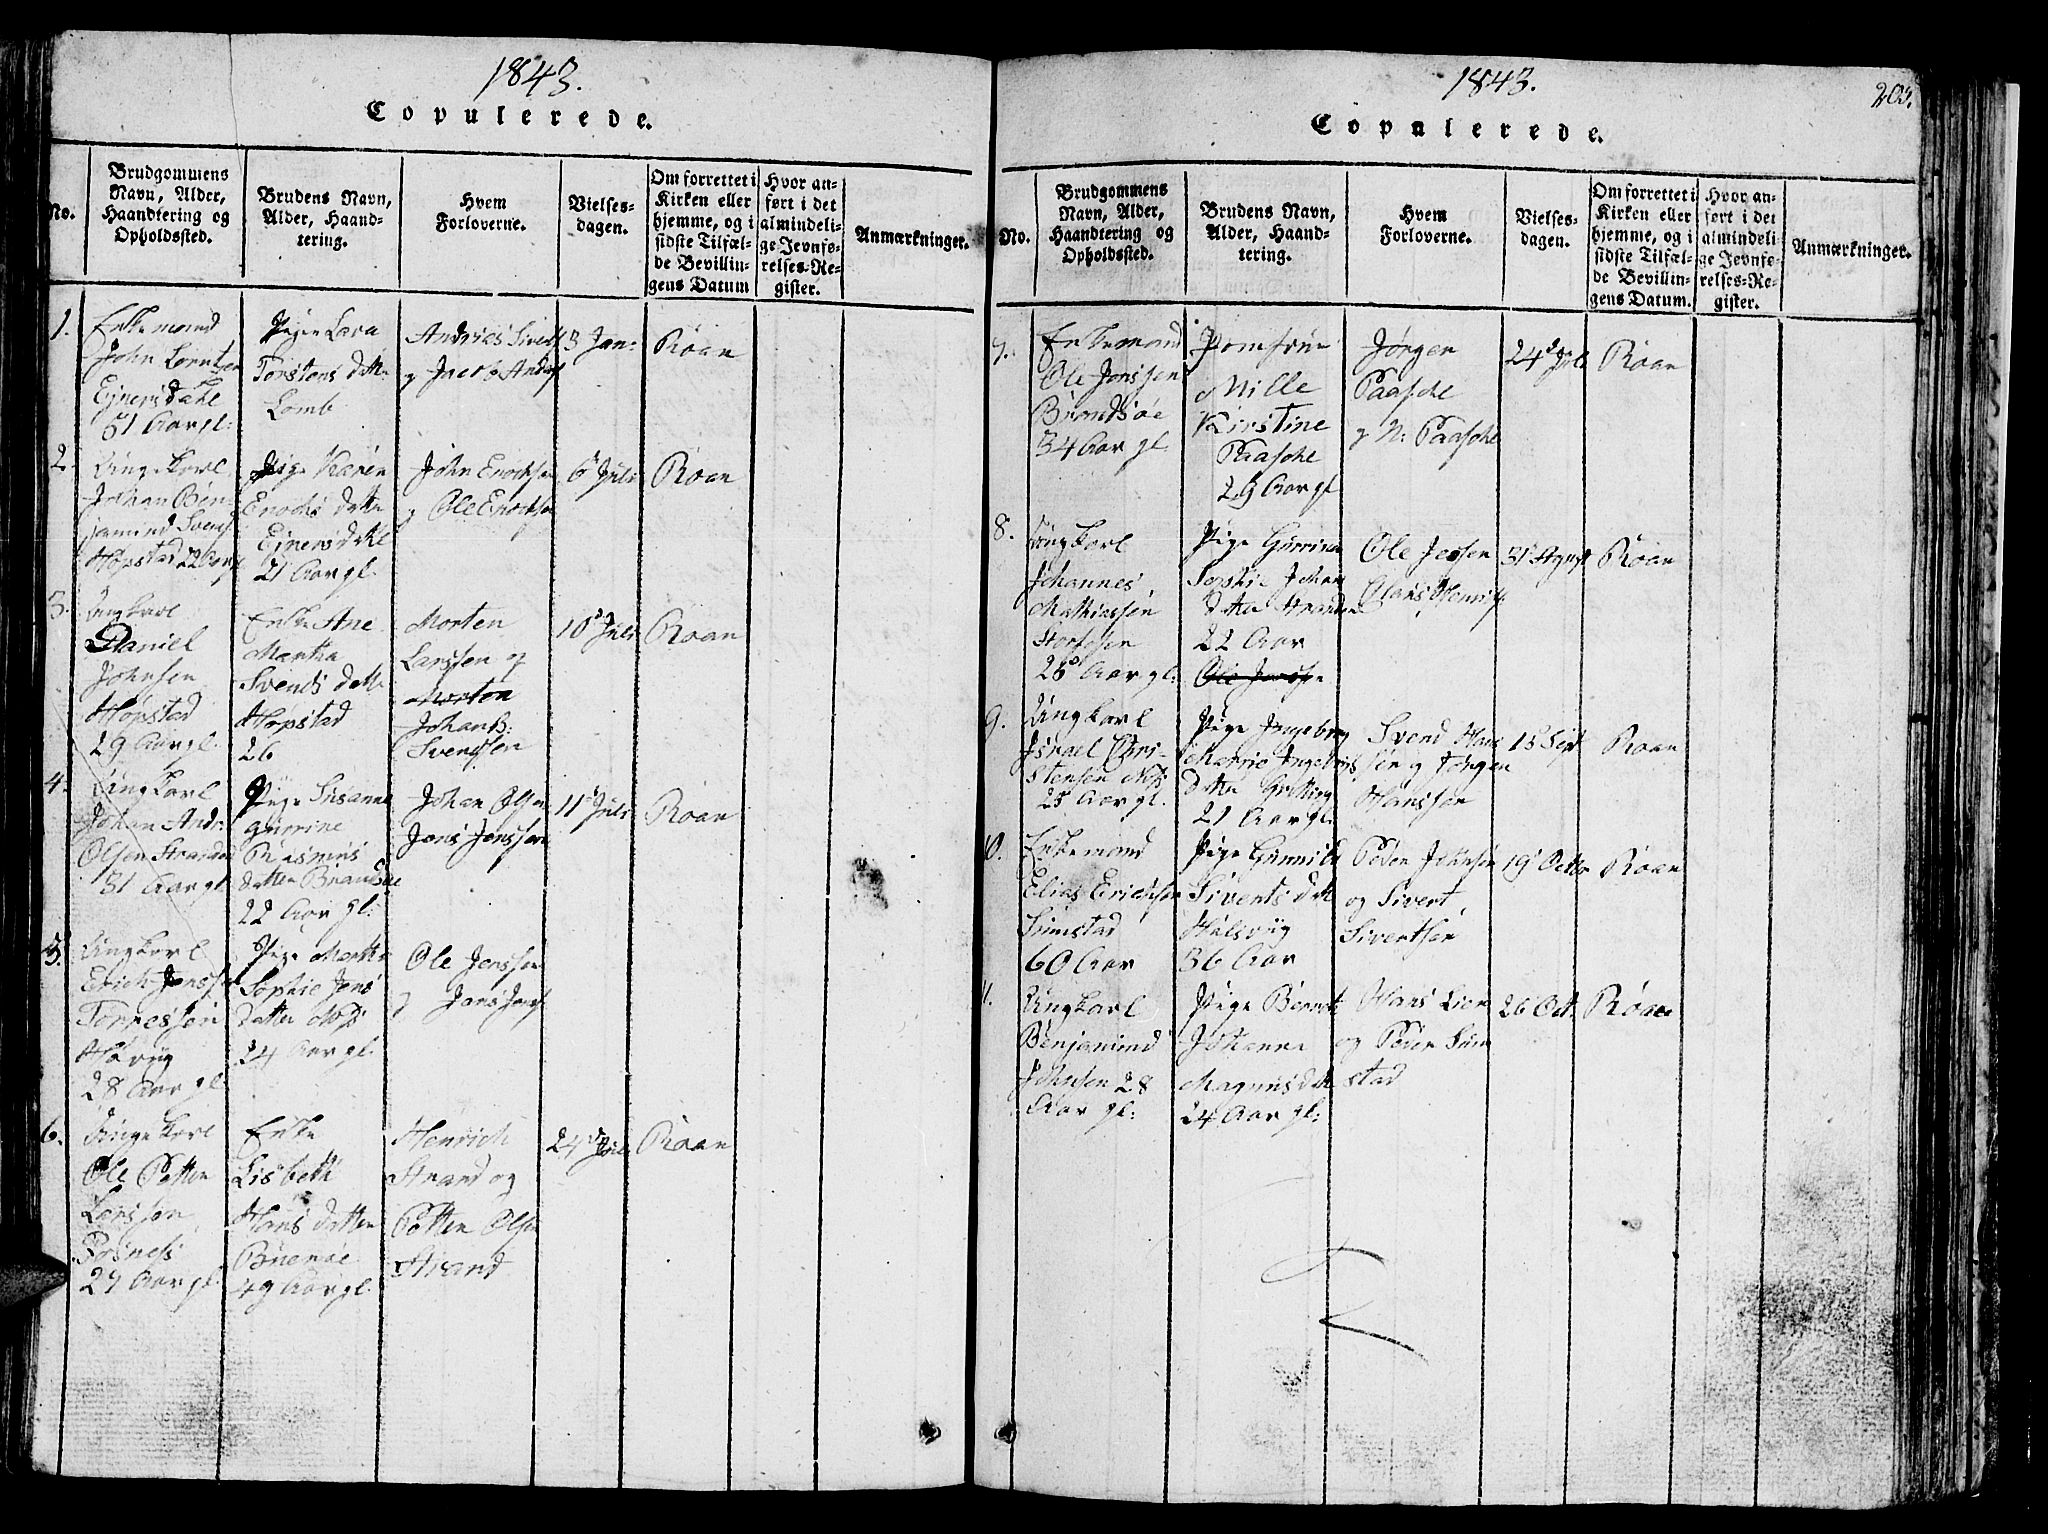 1843.
Copulerede.
No.
Brudgommens
Navn, Alder,
Haandtering og
Opholdssted.
Brudens Navn,
Alder, Haand-
tering.
Hvem
Forloverne.
Vielses-
dagen.
Om forrettet i
Kirken eller
hjemme, og i
sidste Tilfæl-
de Bevillin-
gens Datum
Hvor an-
ført i det
almindeli-
ge Jevnfø-
relses-Re-
gister.
Anmærkninger.
1.
Enkemand
John Lorntsen
Ejnersdahl
51 Aar gl:
Pige Lava
Torstens datt.
Lomb
Andreas
g Jacob Anders
3 Jan:
Roan
2.
Ungekarl
Johan Ben-
jamind Svens
Hopstad 22 Aar g
Pige Karen
Enochs datter
Ejnersdahl
21 Aar gl.
John Enochsen
g Ole Enochsen
6 Juli
Roan
3.
Ungkarl
Daniel
Johnsen
Hopstad
29 Aar gl.
Enke Ane
Martha
Svends datt.
Hopstad
26
Morten
Larssen og
Morten
Johan B:
Svendsen
10 Juli
Roan
4.
Ungkarl
Johan Andr.
Olsen Strander
31 Aar gl.
Pige Susanne
Gurrine
Rasmus
datter Brandsøe
22 Aar gl.
Johan Olsen
Jens Jenssen
11 Juli
Roan
5.
Ungkarl
Erich Jenssen
Tornessen
Hovüg
28 Aar gl.
Pige Martha
Sophie Jens
datter Næss
24 Aar gl.
Ole Jenssen
g Jens Jens
6.
Ungekarl
Ole Petter
Larssen
Fosness
29 Aar gl.
Enke
Lisbeth
Hans datter
49 Aar gl.
Henrich
Strand og
Petter Olsen
Strand
24 Juli
Roan
1843.
203.
Copulerede.
No.
Brudgommens
Navn, Alder,
Haandtering og
Opholdssted.
Brudens Navn,
Alder, Haand-
tering.
Hvem
Forloverne.
Vielses-
dagen.
Om forrettet i
Kirken eller
hjemme, og i
sidste Tilfæl-
de Bevillin-
gens Datum.
Hvor an-
ført i det
almindeli-
ge Jevnfø-
relses-Re-
gister.
Anmærkninger.
7.
Enkemand
Ole Jenssen
Brandsøe
34 Aar gl.
Jomfrue
Mille
Kirstine
Paasche
29 Aar gl
Jørgen
Paasche
g N: Paasche
24 Juli
Roan
8.
Ungkarl
Johannes
Mathiassen
26 Aar gl:
Pige Gurrine
Sophie Johan
datter Strander
22 Aar
Ole Jenssen
Ole Jessen
Hans Henrich
31 August
Roan
9.
Ungkarl
Israel Chri-
stensen Næss
25 Aar gl.
Pige Ingeborg
Marie Ingebrigs
datter
21 Aar gl.
Svend Han
sen g Jørgen
Hanssen
15 Sept
Roan
10.
Enkemand
Elias Erichsen
Sumstad
60 Aar
Pige Gunnild
Siverts datt
Halsvüg
36 Aar
Peder Johnsen
og Sivert
Sivertsen
19 Octbr
Roan
11.
Ungkarl
Benjamind
Johnsen 28
Aar gl:
Pige Berndt
Johanna
Magnus datt
24 Aar gl:
Hans Lien
og Peder Sum
stad
26 Oct.
Roan